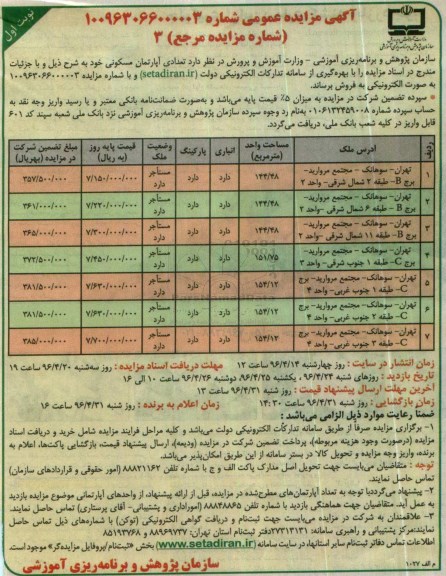 نوبت اول
آگهی مزایده عمومی شماره ۱۰۰۹۶۳۰۶۶۰۰۰۰۰۳
(شماره مزایده مرجع) ۳
سازمان پژوهش و برنامه‌ریزی آموزشی - وزارت آموزش و پرورش در نظر دارد تعدادی آپارتمان مسکونی خود به شرح ذیل و با جزئیات
مندرج در اسناد مزایده را با بهره‌گیری از سامانه تدارکات الکترونیکی دولت (setadiran.ir) و با شماره مزایده ۱۰۰۹۶۳۰۶۶۰۰۰۰۰۳
به صورت الکترونیکی به فروش برساند.
* سپرده تضمین شرکت در مزایده به میزان ۵٪ قیمت پایه می‌باشد و به‌صورت ضمانت‌نامه بانکی معتبر و یا رسید واریز وجه نقد به
حساب سپرده شماره ۰۱۰۶۱۳۲۴۵۹۰۰۸ به‌نام رد وجوه سپرده سازمان پژوهش و برنامه‌ریزی آموزشی نزد بانک ملی شعبه سپند کد ۶۰۱
قابل واریز در کلیه شعب بانک ملی، دریافت می‌گردد.
ردیف | آدرس ملک | مساحت واحد (مترمربع) | انباری | پارکینگ | وضعیت ملک | قیمت پایه روز (به ریال) | مبلغ تضمین شرکت در مزایده (به‌ریال)
۱ | تهران- سوهانک - مجتمع مروارید- برج B- طبقه ۲ شمال شرقی- واحد ۲ | ۱۴۴/۴۸ | دارد | دارد | مستأجر دارد | ۷/۱۵۰/۰۰۰/۰۰۰ | ۳۵۷/۵۰۰/۰۰۰
۲ | تهران- سوهانک - مجتمع مروارید- برج B- طبقه ۶ شمال شرقی- واحد ۲ | ۱۴۴/۴۸ | دارد | دارد | مستأجر دارد | ۷/۲۲۰/۰۰۰/۰۰۰ | ۳۶۱/۰۰۰/۰۰۰
۳ | تهران- سوهانک - مجتمع مروارید- برج B- طبقه ۱۱ شمال شرقی- واحد ۲ | ۱۴۴/۴۸ | دارد | دارد | مستأجر دارد | ۷/۳۰۰/۰۰۰/۰۰۰ | ۳۶۵/۰۰۰/۰۰۰
۴ | تهران- سوهانک - مجتمع مروارید- برج C- طبقه ۱ جنوب شرقی- واحد ۳ | ۱۵۱/۷۵ | دارد | دارد | مستأجر دارد | ۷/۴۵۰/۰۰۰/۰۰۰ | ۳۷۲/۵۰۰/۰۰۰
۵ | تهران- سوهانک- مجتمع مروارید- برج C- طبقه ۱ جنوب غربی- واحد ۴ | ۱۵۴/۱۲ | دارد | دارد | مستأجر دارد | ۷/۶۳۰/۰۰۰/۰۰۰ | ۳۸۱/۵۰۰/۰۰۰
۶ | تهران- سوهانک- مجتمع مروارید- برج C- طبقه ۲ جنوب غربی- واحد ۴ | ۱۵۴/۱۲ | دارد | دارد | مستأجر دارد | ۷/۶۳۰/۰۰۰/۰۰۰ | ۳۸۱/۵۰۰/۰۰۰
۷ | تهران- سوهانک- مجتمع مروارید- برج C- طبقه ۳ جنوب غربی- واحد ۴ | ۱۵۴/۱۲ | دارد | دارد | مستأجر دارد | ۷/۷۰۰/۰۰۰/۰۰۰ | ۳۸۵/۰۰۰/۰۰۰
زمان انتشار در سایت : روز چهارشنبه ۹۶/۴/۱۴ ساعت ۱۲ مهلت دریافت اسناد مزایده: روز سه‌شنبه ۹۶/۴/۲۰ ساعت ۱۹
تاریخ بازدید : روزهای شنبه ۹۶/۴/۲۴، یکشنبه ۹۶/۴/۲۵، دوشنبه ۹۶/۴/۲۶ ساعت ۱۰ الی ۱۶
آخرین مهلت ارسال پیشنهاد قیمت : روز شنبه ۹۶/۴/۳۱ ساعت ۱۳
زمان بازگشایی : روز شنبه ۹۶/۴/۳۱ ساعت ۱۴:۳۰ زمان اعلام به برنده : روز شنبه ۹۶/۴/۳۱ ساعت ۱۶
ضمناً رعایت موارد ذیل الزامی می‌باشد:
۱- برگزاری مزایده صرفاً از طریق سامانه تدارکات الکترونیکی دولت می‌باشد و کلیه مراحل فرایند مزایده شامل خرید و دریافت اسناد
مزایده (درصورت وجود هزینه مربوطه)، پرداخت تضمین شرکت در مزایده (ودیعه)، ارسال پیشنهاد قیمت، بازگشایی پاکت‌ها، اعلام به
برنده، واریز وجه مزایده و تحویل کالا در بستر سامانه از این طریق امکان‌پذیر می‌باشد.
توجه : متقاضیان می‌بایست جهت تحویل اصل مدارک پاکت الف و ج با شماره تلفن ۸۸۸۲۱۱۶۲ (امور حقوقی و قراردادهای سازمان)
تماس حاصل نمایند.
۲- پیشنهاد می‌گردد با توجه به تعداد آپارتمان‌های مطرح‌شده در مزایده، قبل از ارائه پیشنهاد، از واحدهای آپارتمانی موضوع مزایده بازدید
به عمل آید. متقاضیان جهت هماهنگی بازدید با شماره تلفن ۸۸۸۴۸۸۶۵ (اموراداری و پشتیبانی- آقای پرستاری) تماس حاصل نمایند.
۳- علاقمندان به شرکت در مزایده می‌بایست جهت ثبت‌نام و دریافت گواهی الکترونیکی (توکن) با شماره‌های ذیل تماس حاصل
نمایند:مرکز پشتیبانی و راهبری سامانه: ۲۷۳۱۳۱۳۱دفتر ثبت‌نام استان تهران: ۸۸۹۶۹۷۳۷ و ۸۵۱۹۳۷۶۸
اطلاعات تماس دفاتر ثبت‌نام سایر استانها، در سایت سامانه (www.setadiran.ir) بخش «ثبت‌نام/پروفایل مزایده‌گر» موجود است.
م الف ۱۰۲۷
سازمان پژوهش و برنامه‌ریزی آموزشی